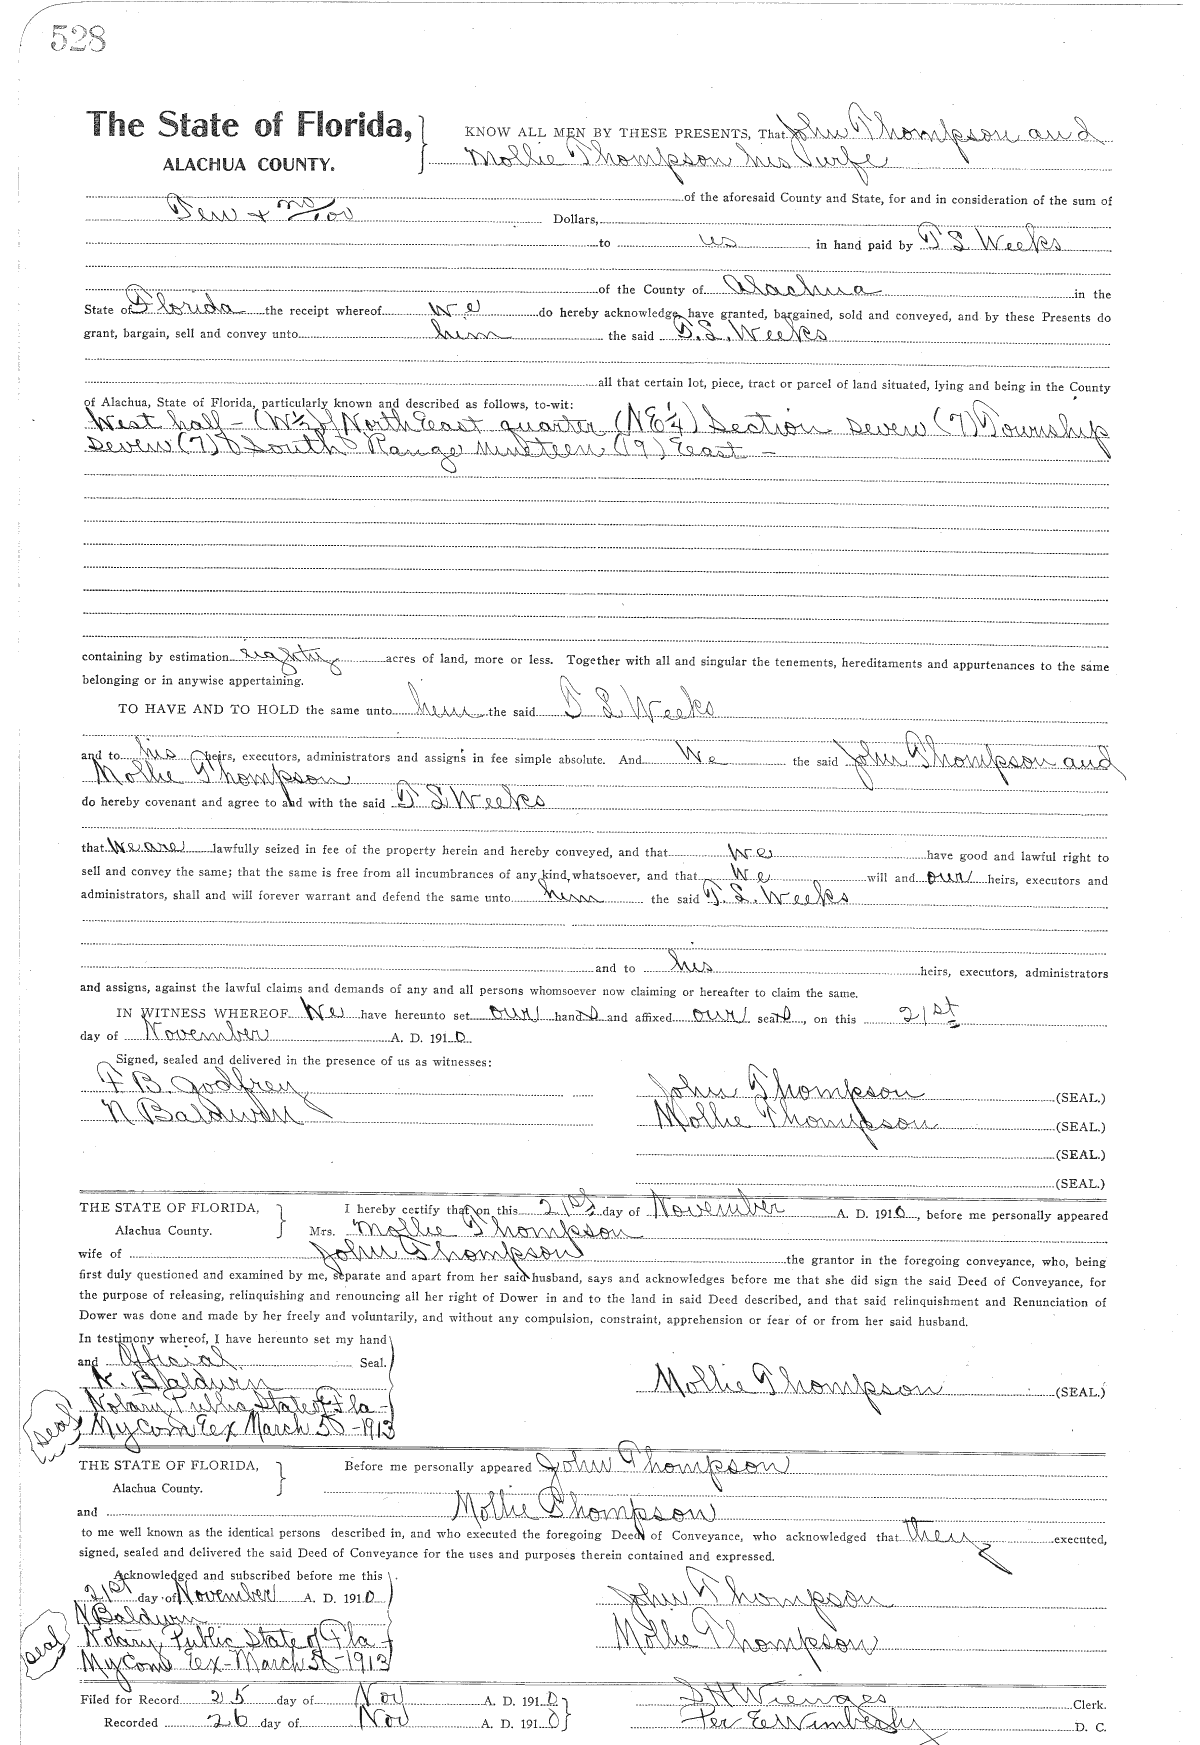 528
The State of Florida,
ALACHUA COUNTY.
KNOW ALL MEN BY THESE PRESENTS, That John Thompson and
Mollie Thompson his wife
of the aforesaid County and State, for and in consideration of the sum of
Ten + no/100 Dollars,
to us in hand paid by T S Weeks
of the County of Alachua in the
State of Florida the receipt whereof we do hereby acknowledge, have granted, bargained, sold and conveyed, and by these Presents do
grant, bargain, sell and convey unto him the said T. S. Weeks
all that certain lot, piece, tract or parcel of land situated, lying and being in the County
of Alachua, State of Florida, particularly known and described as follows, to-wit:
West half - (W½) of North East quarter (NE¼) Section seven (7) Township
seven (7) South Range nineteen (19) East -
containing by estimation eighty acres of land, more or less. Together with all and singular the tenements, hereditaments and appurtenances to the same
belonging or in anywise appertaining.
TO HAVE AND TO HOLD the same unto him the said T S Weeks
and to his heirs, executors, administrators and assigns in fee simple absolute. And We the said John Thompson and
Mollie Thompson
do hereby covenant and agree to and with the said T S Weeks
that we are lawfully seized in fee of the property herein and hereby conveyed, and that we have good and lawful right to
sell and convey the same; that the same is free from all incumbrances of any kind whatsoever, and that we will and our heirs, executors and
administrators, shall and will forever warrant and defend the same unto him the said T. S. Weeks
and to his heirs, executors, administrators
and assigns, against the lawful claims and demands of any and all persons whomsoever now claiming or hereafter to claim the same.
IN WITNESS WHEREOF We have hereunto set our hands and affixed our seals, on this 21st
day of November A. D. 1910.
Signed, sealed and delivered in the presence of us as witnesses:
F B. Godfrey
N Baldwin
John Thompson (SEAL.)
Mollie Thompson (SEAL.)
(SEAL.)
(SEAL.)
THE STATE OF FLORIDA,
Alachua County.
I hereby certify that on this 21st day of November A. D. 1910, before me personally appeared
Mrs. Mollie Thompson
wife of John Thompson the grantor in the foregoing conveyance, who, being
first duly questioned and examined by me, separate and apart from her said husband, says and acknowledges before me that she did sign the said Deed of Conveyance, for
the purpose of releasing, relinquishing and renouncing all her right of Dower in and to the land in said Deed described, and that said relinquishment and Renunciation of
Dower was done and made by her freely and voluntarily, and without any compulsion, constraint, apprehension or fear of or from her said husband.
In testimony whereof, I have hereunto set my hand
and Official Seal.
N. Baldwin
Notary Public State of Fla -
My Com Ex March -1913
seal
Mollie Thompson (SEAL.)
THE STATE OF FLORIDA,
Alachua County.
Before me personally appeared John Thompson
and Mollie Thompson
to me well known as the identical persons described in, and who executed the foregoing Deed of Conveyance, who acknowledged that they executed,
signed, sealed and delivered the said Deed of Conveyance for the uses and purposes therein contained and expressed.
Acknowledged and subscribed before me this
21st day of November A. D. 1910
N Baldwin
Notary Public State of Fla -
My Com Ex - March -1913
seal
John Thompson
Mollie Thompson
Filed for Record 25 day of Nov A. D. 1910
Recorded 26 day of Nov A. D. 1910
S H Wienges Clerk.
Per E Wimberly D. C.